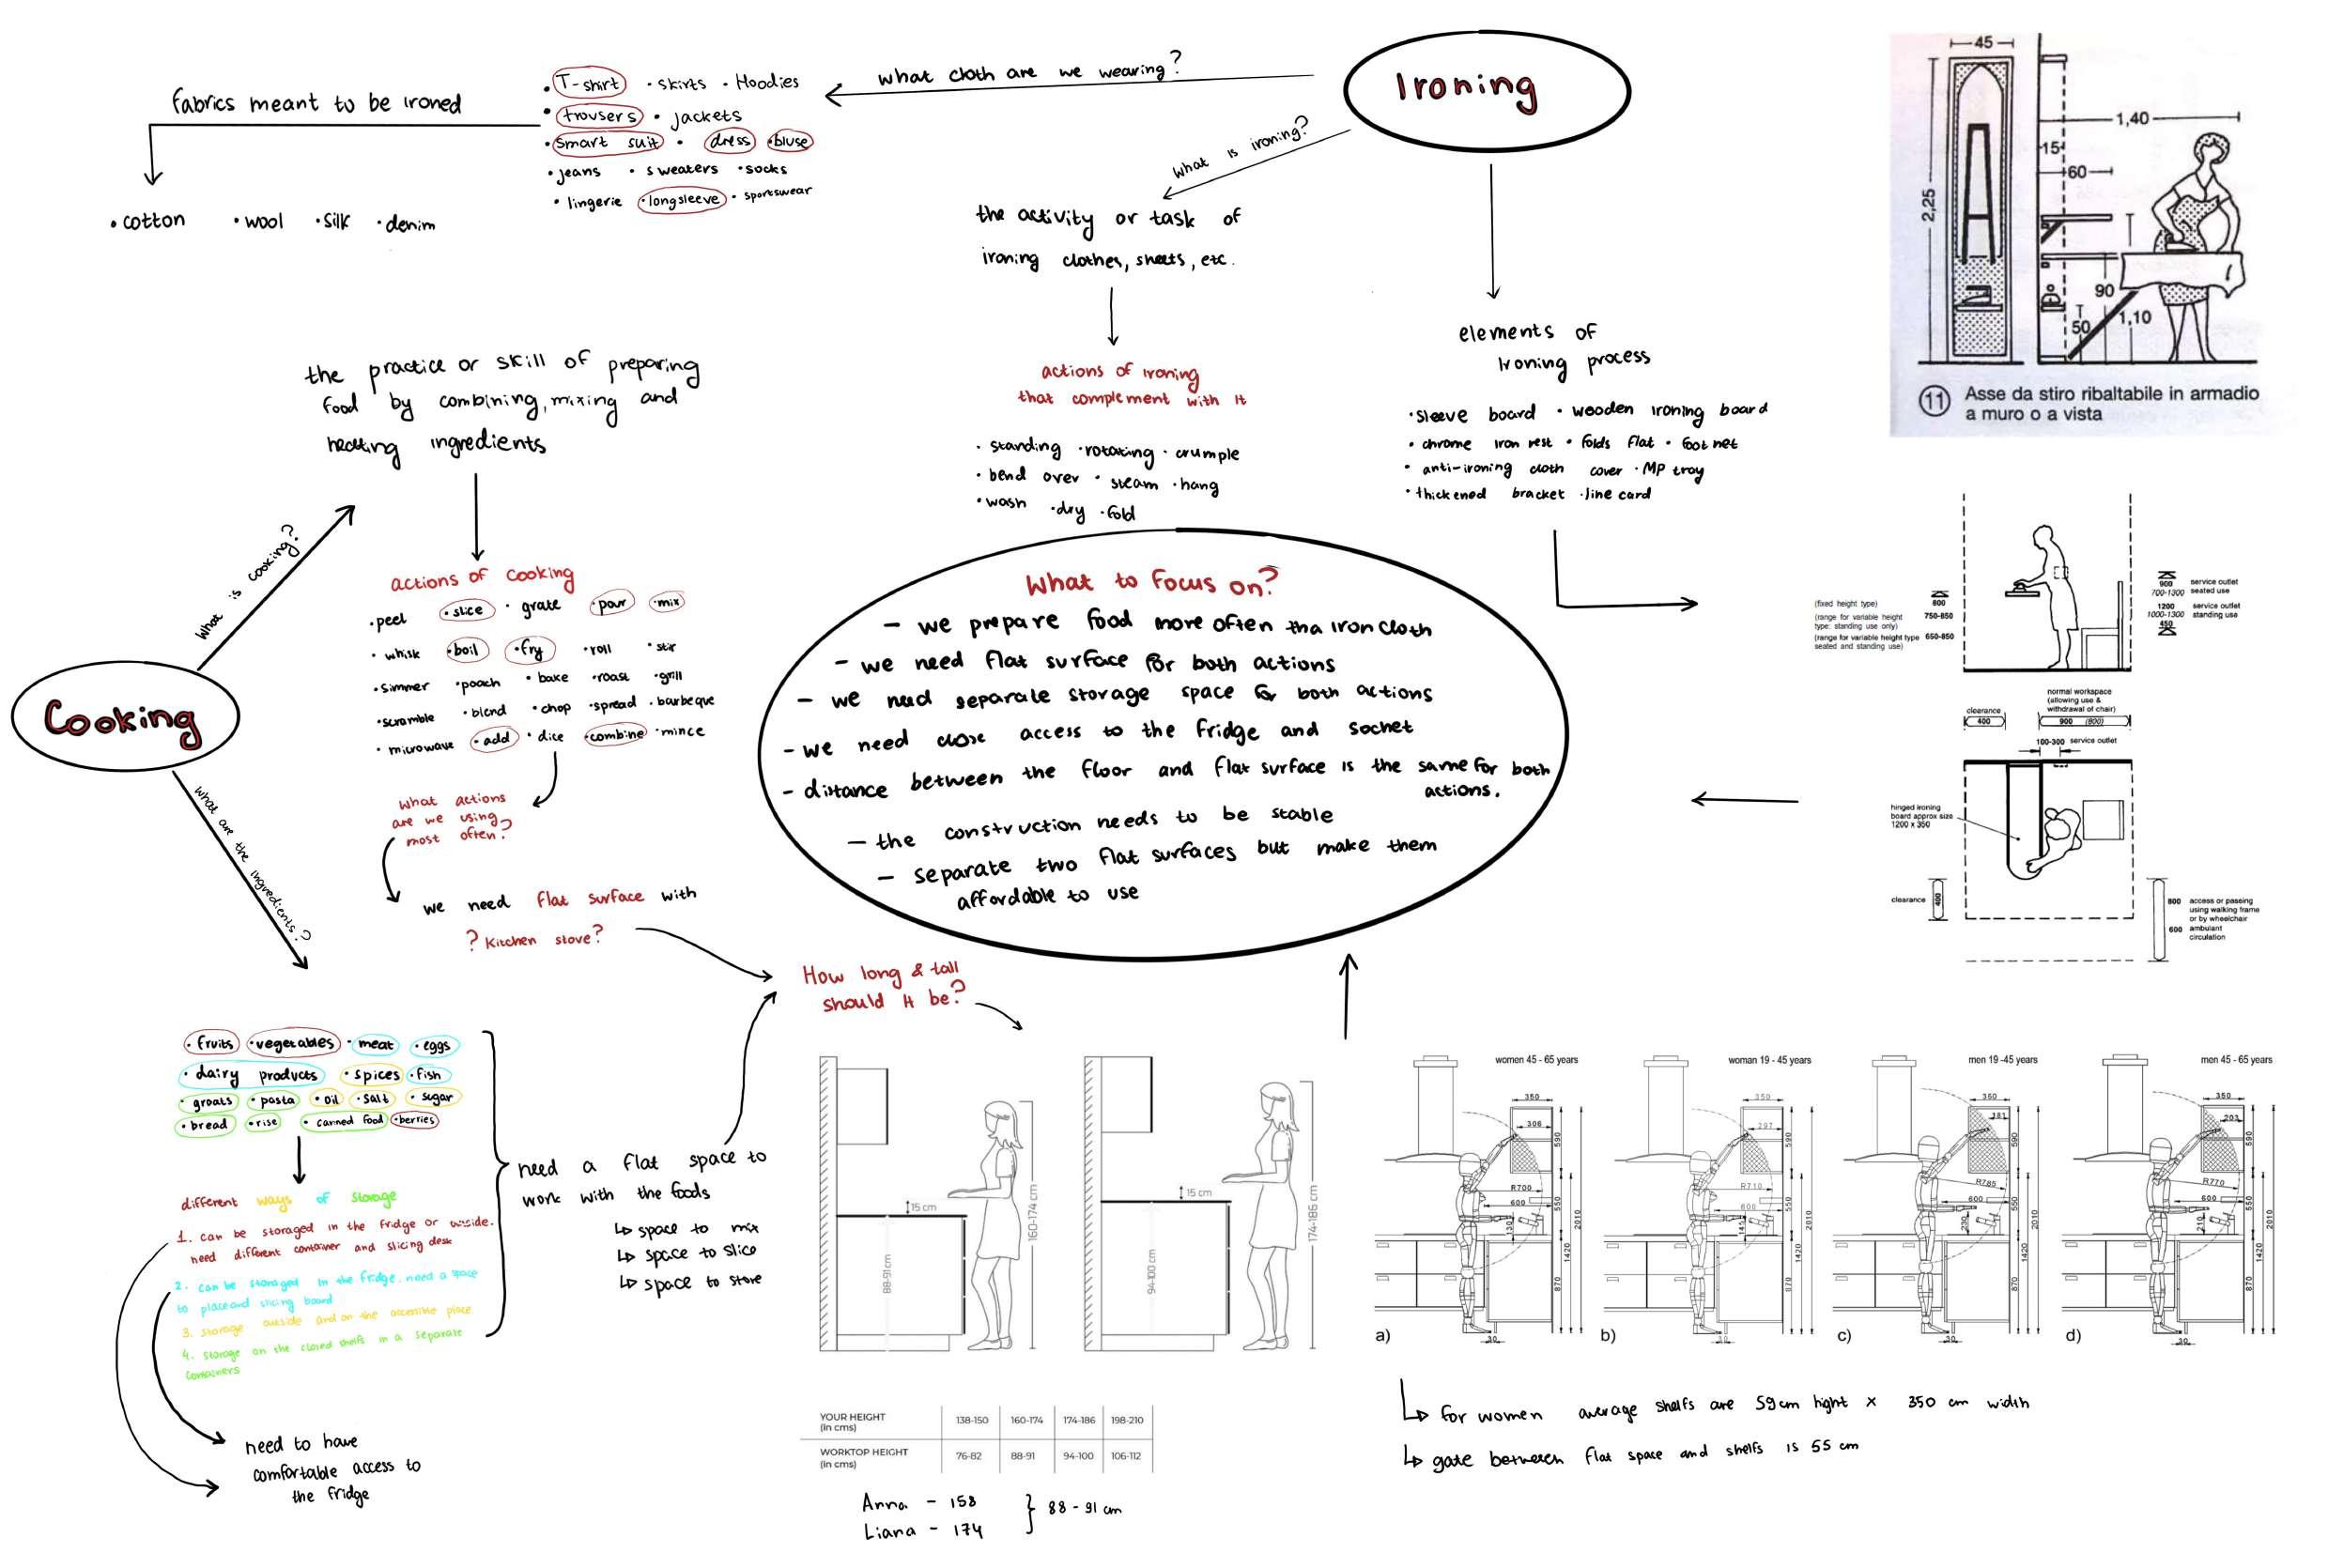 Ironing
what cloth are we wearing?
• T-shirt • skirts • Hoodies
• trousers • jackets
• Smart suit • dress • bluse
• jeans • sweaters • socks
• lingerie • longsleeve • sportswear
fabrics meant to be ironed
• cotton • wool • silk • denim
what is ironing?
the activity or task of
ironing clothes, sheets, etc.
actions of ironing
that complement with it
• standing • rotating • crumple
• bend over • steam • hang
• wash • dry • fold
elements of
Ironing process
• sleeve board • wooden ironing board
• chrome iron rest • folds flat • foot net
• anti-ironing cloth cover • MP tray
• thickened bracket • line card
45
2,25
1,40
15
60
90
50
1,10
11 Asse da stiro ribaltabile in armadio
a muro o a vista
(fixed height type) 800
(range for variable height
type: standing use only) 750-850
(range for variable height type
seated and standing use) 650-850
900 service outlet
700-1300 seated use
1200 service outlet
1000-1300 standing use
450
normal workspace
(allowing use &
withdrawal of chair)
clearance
400
900 (800)
100-300 service outlet
hinged ironing
board approx size
1200 x 350
clearance
400
800 access or passing
using walking frame
or by wheelchair
600 ambulant
circulation
Cooking
What is cooking?
the practice or skill of preparing
food by combining, mixing and
heating ingredients
actions of cooking
• peel • slice • grate • pour • mix
• whisk • boil • fry • roll • stir
• simmer • poach • bake • roast • grill
• scramble • blend • chop • spread • barbeque
• microwave • add • dice • combine • mince
what actions
are we using
most often?
we need flat surface with
? Kitchen stove?
What are the ingredients?
• fruits • vegetables • meat • eggs
• dairy products • spices • fish
• groats • pasta • oil • salt • sugar
• bread • rise • canned food • berries
different ways of storage
1. can be storaged in the fridge or outside.
need different container and slicing desk
2. can be storaged in the fridge. need a space
to place and slicing board
3. storage outside and on the accessible place
4. storage on the closed shelfs in a separate
containers
need to have
comfortable access to
the fridge
need a flat space to
work with the foods
↳ space to mix
↳ space to slice
↳ space to store
How long & tall
should it be?
What to focus on?
– we prepare food more often tha iron cloth
– we need flat surface for both actions
– we need separate storage space for both actions
– we need close access to the fridge and socket
– distance between the floor and flat surface is the same for both
actions.
– the construction needs to be stable
– separate two flat surfaces but make them
affordable to use
15 cm
88-91 cm
160-174 cm
15 cm
94-100 cm
174-186 cm
YOUR HEIGHT
(in cms) 138-150 160-174 174-186 198-210
WORKTOP HEIGHT
(in cms) 76-82 88-91 94-100 106-112
Anna – 158
Liana – 174 } 88 - 91 cm
women 45 - 65 years
350
306
590
R700
600
550
130
1420
2010
870
30
a)
woman 19 - 45 years
350
297
590
R710
600
550
145
1420
2010
870
b)
men 19 -45 years
350
181
590
R785
600
550
230
1420
2010
870
30
c)
men 45 - 65 years
350
203
590
R770
600
550
210
1420
2010
870
30
d)
↳ for women average shelfs are 59cm hight x 350 cm width
↳ gate between flat space and shelfs is 55 cm